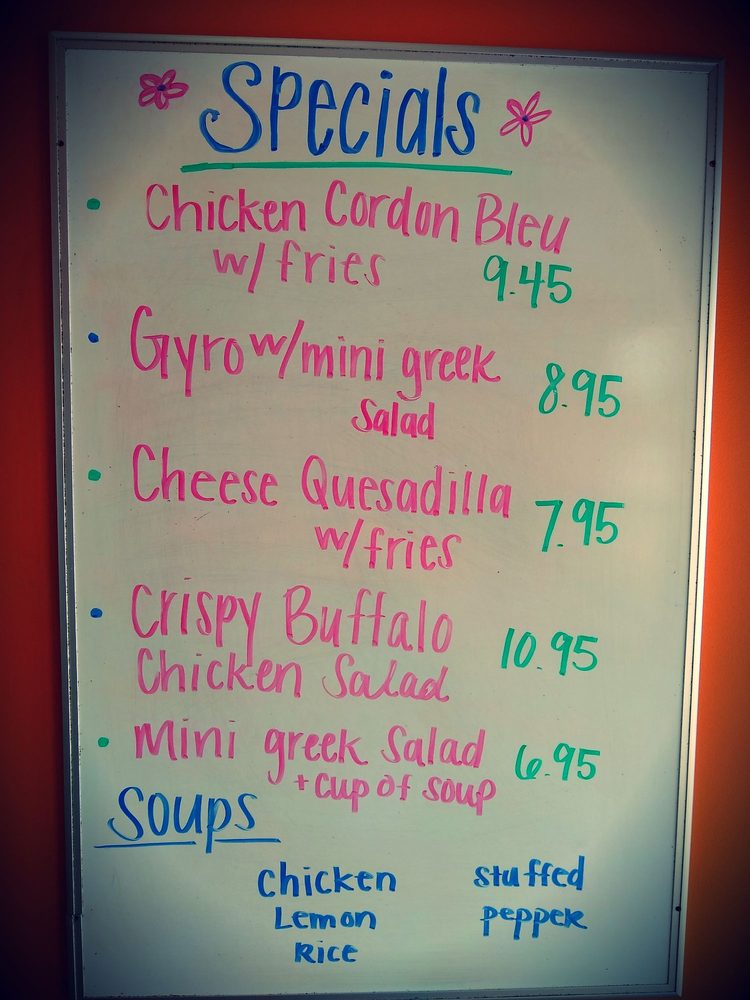 Specials
Chicken Cordon Bleu
w/ fries 9.45
Gyro w/mini greek 8.95
Salad
Cheese Quesadilla 7.95
w/fries
Crispy Buffalo 10.95
Chicken Salad
Mini greek Salad 6.95
+ cup of soup
Soups
Chicken
Lemon
Rice
Stuffed
pepper